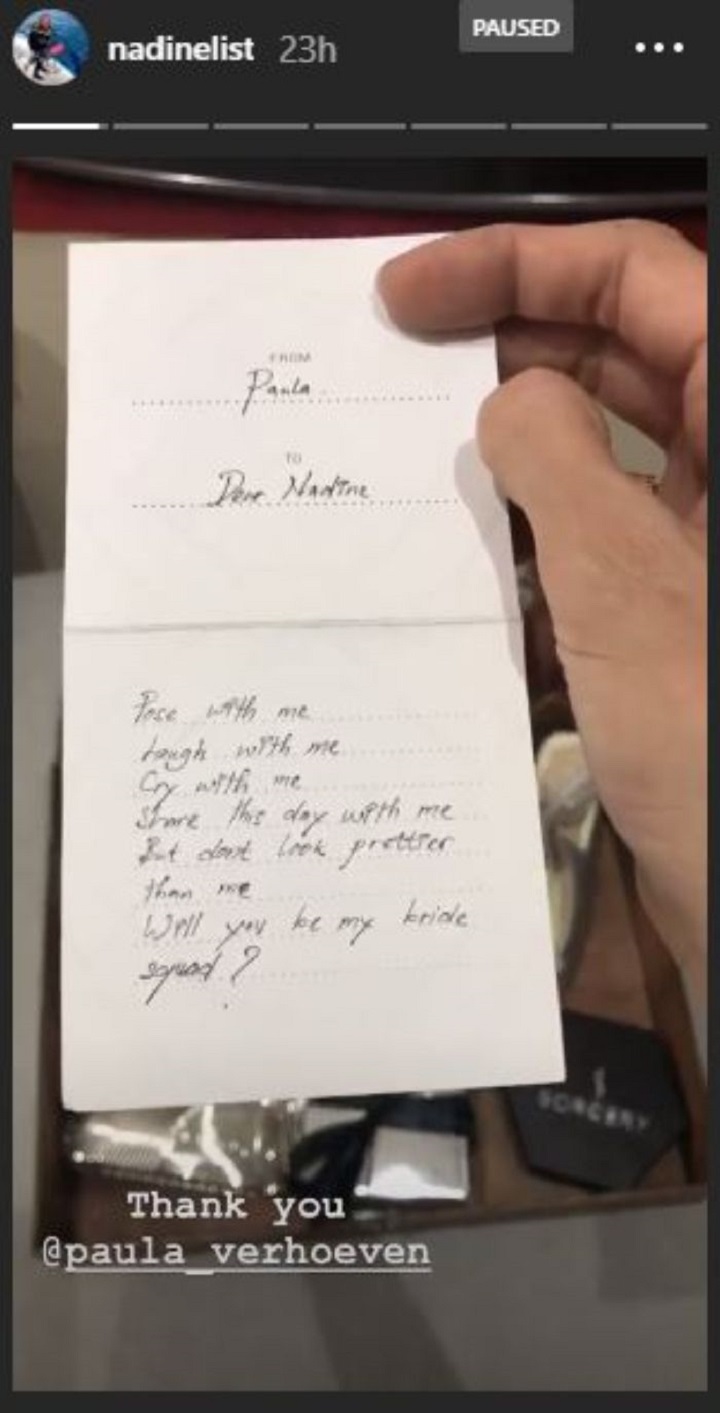 nadinelist 23h
PAUSED
FROM
Paula
TO
Dear Nadine
Pose with me
Laugh with me
Cry with me
Share this day with me
But dont look prettier
than me
Will you be my bride
squad?
SORCERY
Thank you
@paula_verhoeven